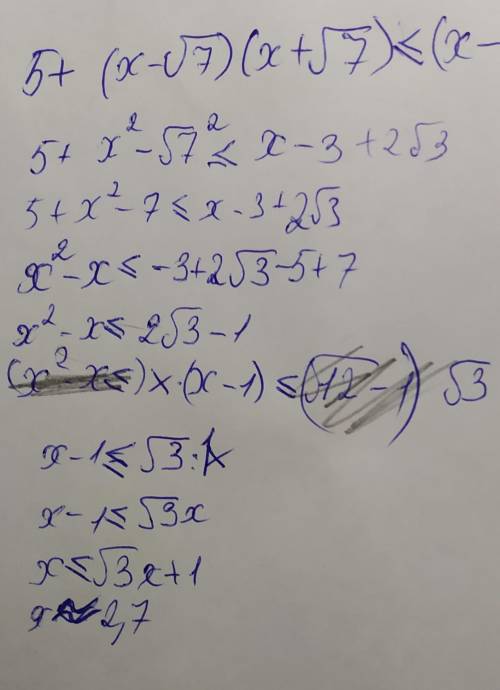 5+ (x-√7)(x+√7)≤(x-
5+ x²-√7²≤ x-3+2√3
5+x²-7≤x-3+2√3
x²-x≤-3+2√3-5+7
x²-x≤2√3-1
(x²-x≤)x·(x-1)≤(√12-1) √3
x-1≤√3:
x-1≤√3x
x≤√3x+1
x≈2,7